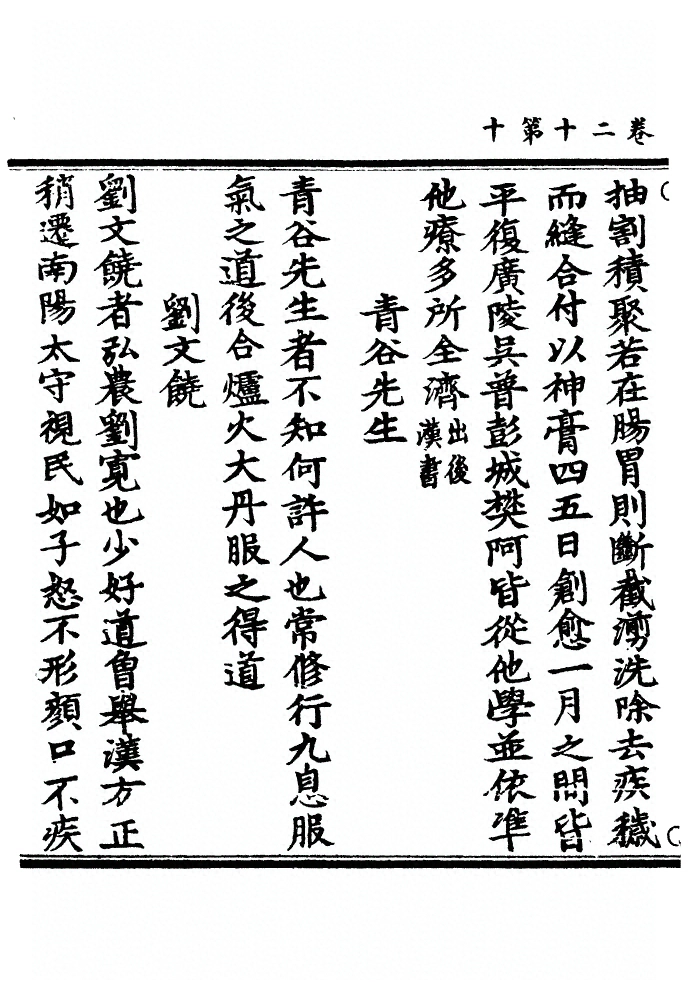 卷二十第十
抽割積聚若在腸胃則斷截湔洗除去疾穢
而縫合付以神膏四五日創愈一月之間皆
平復廣陵吳普彭城樊阿皆從他學並依準
他療多所全濟出後漢書
青谷先生
青谷先生者不知何許人也常修行九息服
氣之道後合爐火大丹服之得道
劉文饒
劉文饒者弘農劉寬也少好道曾舉漢方正
稍遷南陽太守視民如子怒不形顏口不疾